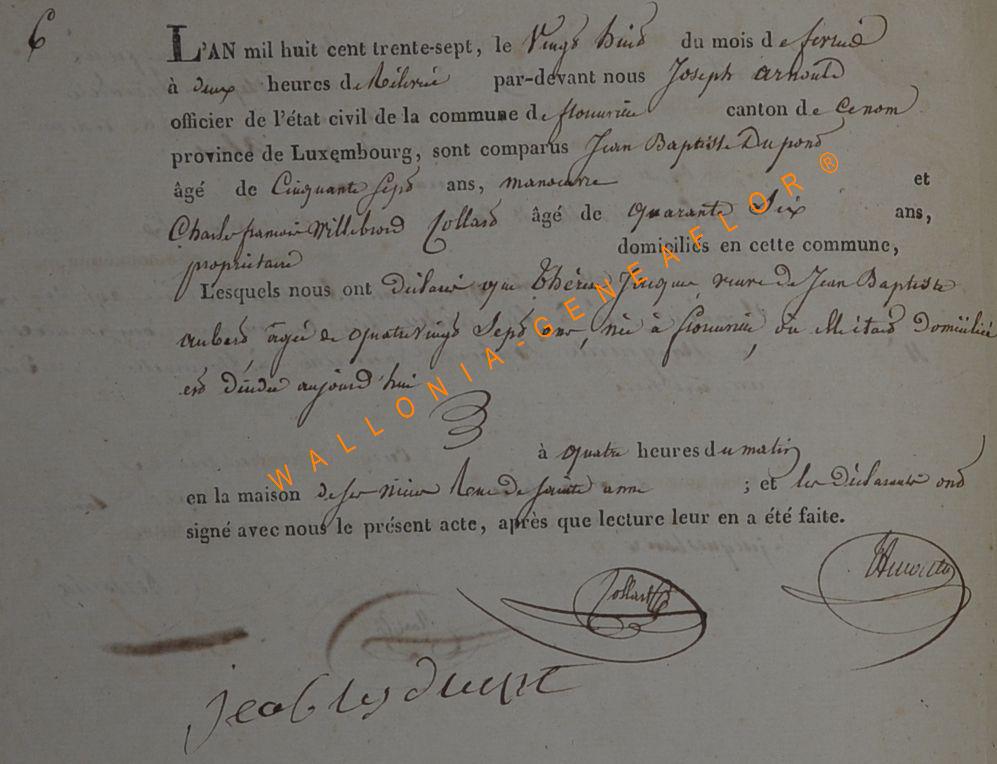 6
L'AN mil huit cent trente-sept, le Vingt huit du mois de
à deux heures de Rélevée par-devant nous Joseph arnould
officier de l'état civil de la commune de canton de
province de Luxembourg, sont comparus Jean Baptiste Dupond
âgé de Cinquante Sept ans, manoeuvre et
Charles françois Willebrord Collard âgé de quarante Six ans,
propriétaire domiciliés en cette commune,
Lesquels nous ont déclaré que Thérèse veuve de Jean Baptiste
aubert âgée de quatre vingt Sept ans, née à où elle était Domiciliée
est décédée aujourd'hui
à quatre heures du matin
en la maison de Rue de Sainte anne ; et les déclarants ont
signé avec nous le présent acte, après que lecture leur en a été faite.
Collard
WALLONIA-GENEAFLOR®